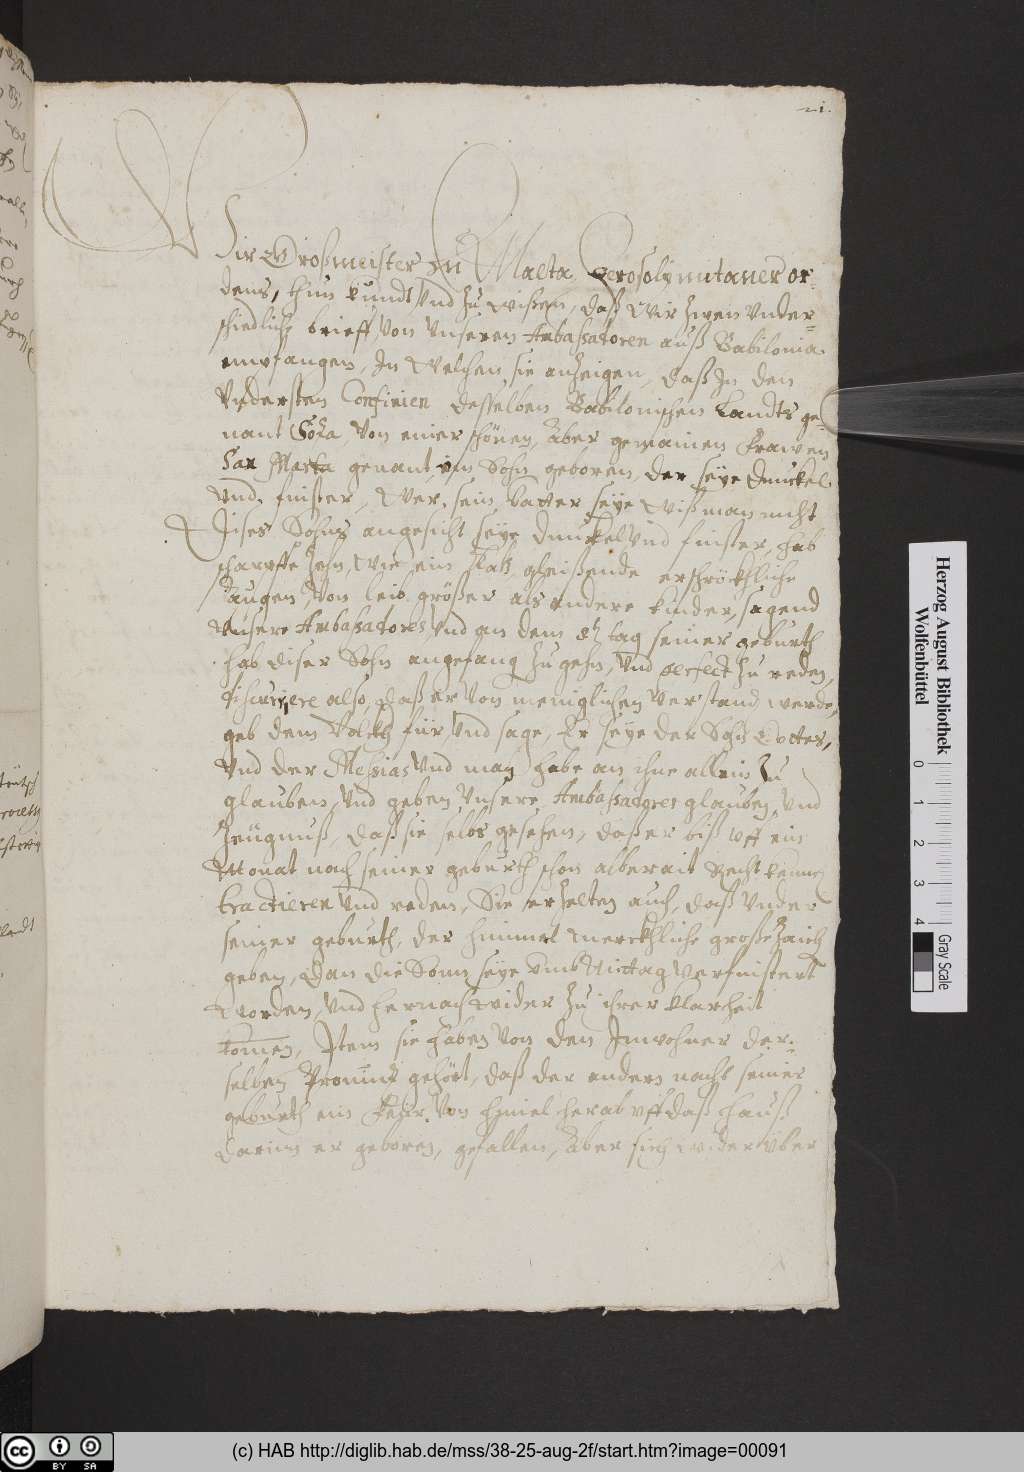 21.
Wir Großmeister zu Malta, Jerosolymitaner or-
dens, thun kundt Vnd zu wißen, daß Wir zwen Vnder-
schiedliche brieff, Von Vnseren Ambaßatoren auß Babilonia
empfangen, In Welchen sie anzeigen, daß In den
Vndersten Confinien desselben Babilonischen Landts ge-
nant von einer schönen, Aber gemainen Frawen
genant, ein Sohn geboren, der seye dunckel
vnd finster, Wer sein Vatter seye Wiß man nicht
Dises Sohns angesicht seye dunckel Vnd finster, hab
scharpffe zehn, Wie ein Katz, gleißende erschröckhliche
augen, Von leib größer als andere kinder, sagend
Vnsere Ambaßatores Vnd an dem 8t tag seiner geburth
hab diser Sohn angefang zu gehn, Vnd perfect zu reden,
discurriere also, daß er Von meniglichen Verstand werde,
geb dem Volckh für, Vnd sage, Er seye der Sohn Gottes,
Vnd der Messias Vnd man habe an ihne allein zu
glauben, Vnd geben Vnsere Ambaßadores glauben, Vnd
Zeugnuß, daß sie selbs gesehen, daß er biß vff ein
Monat nach seiner geburth schon alberait Recht
tractieren Vnd reden, Sie erzelten auch, daß Vnder
seiner geburth, der himmel merckhliche große zaich
geben, Dan die Sonn seye vmb Mittag Verfinstert
Worden, Vnd hernach Wider zu ihrer klarheit
komen, Item sie haben Von den Inwohner der-
selben Prouinz gehört, daß der andern nacht seiner
geburth ein Fehr Von himel herab vff daß hauß
darinn er geboren, gefallen, Aber sich wider vber
Herzog August Bibliothek
Wolfenbüttel
0 1 2 3 4
Gray Scale
(c) HAB http://diglib.hab.de/mss/38-25-aug-2f/start.htm?image=00091
cc BY SA